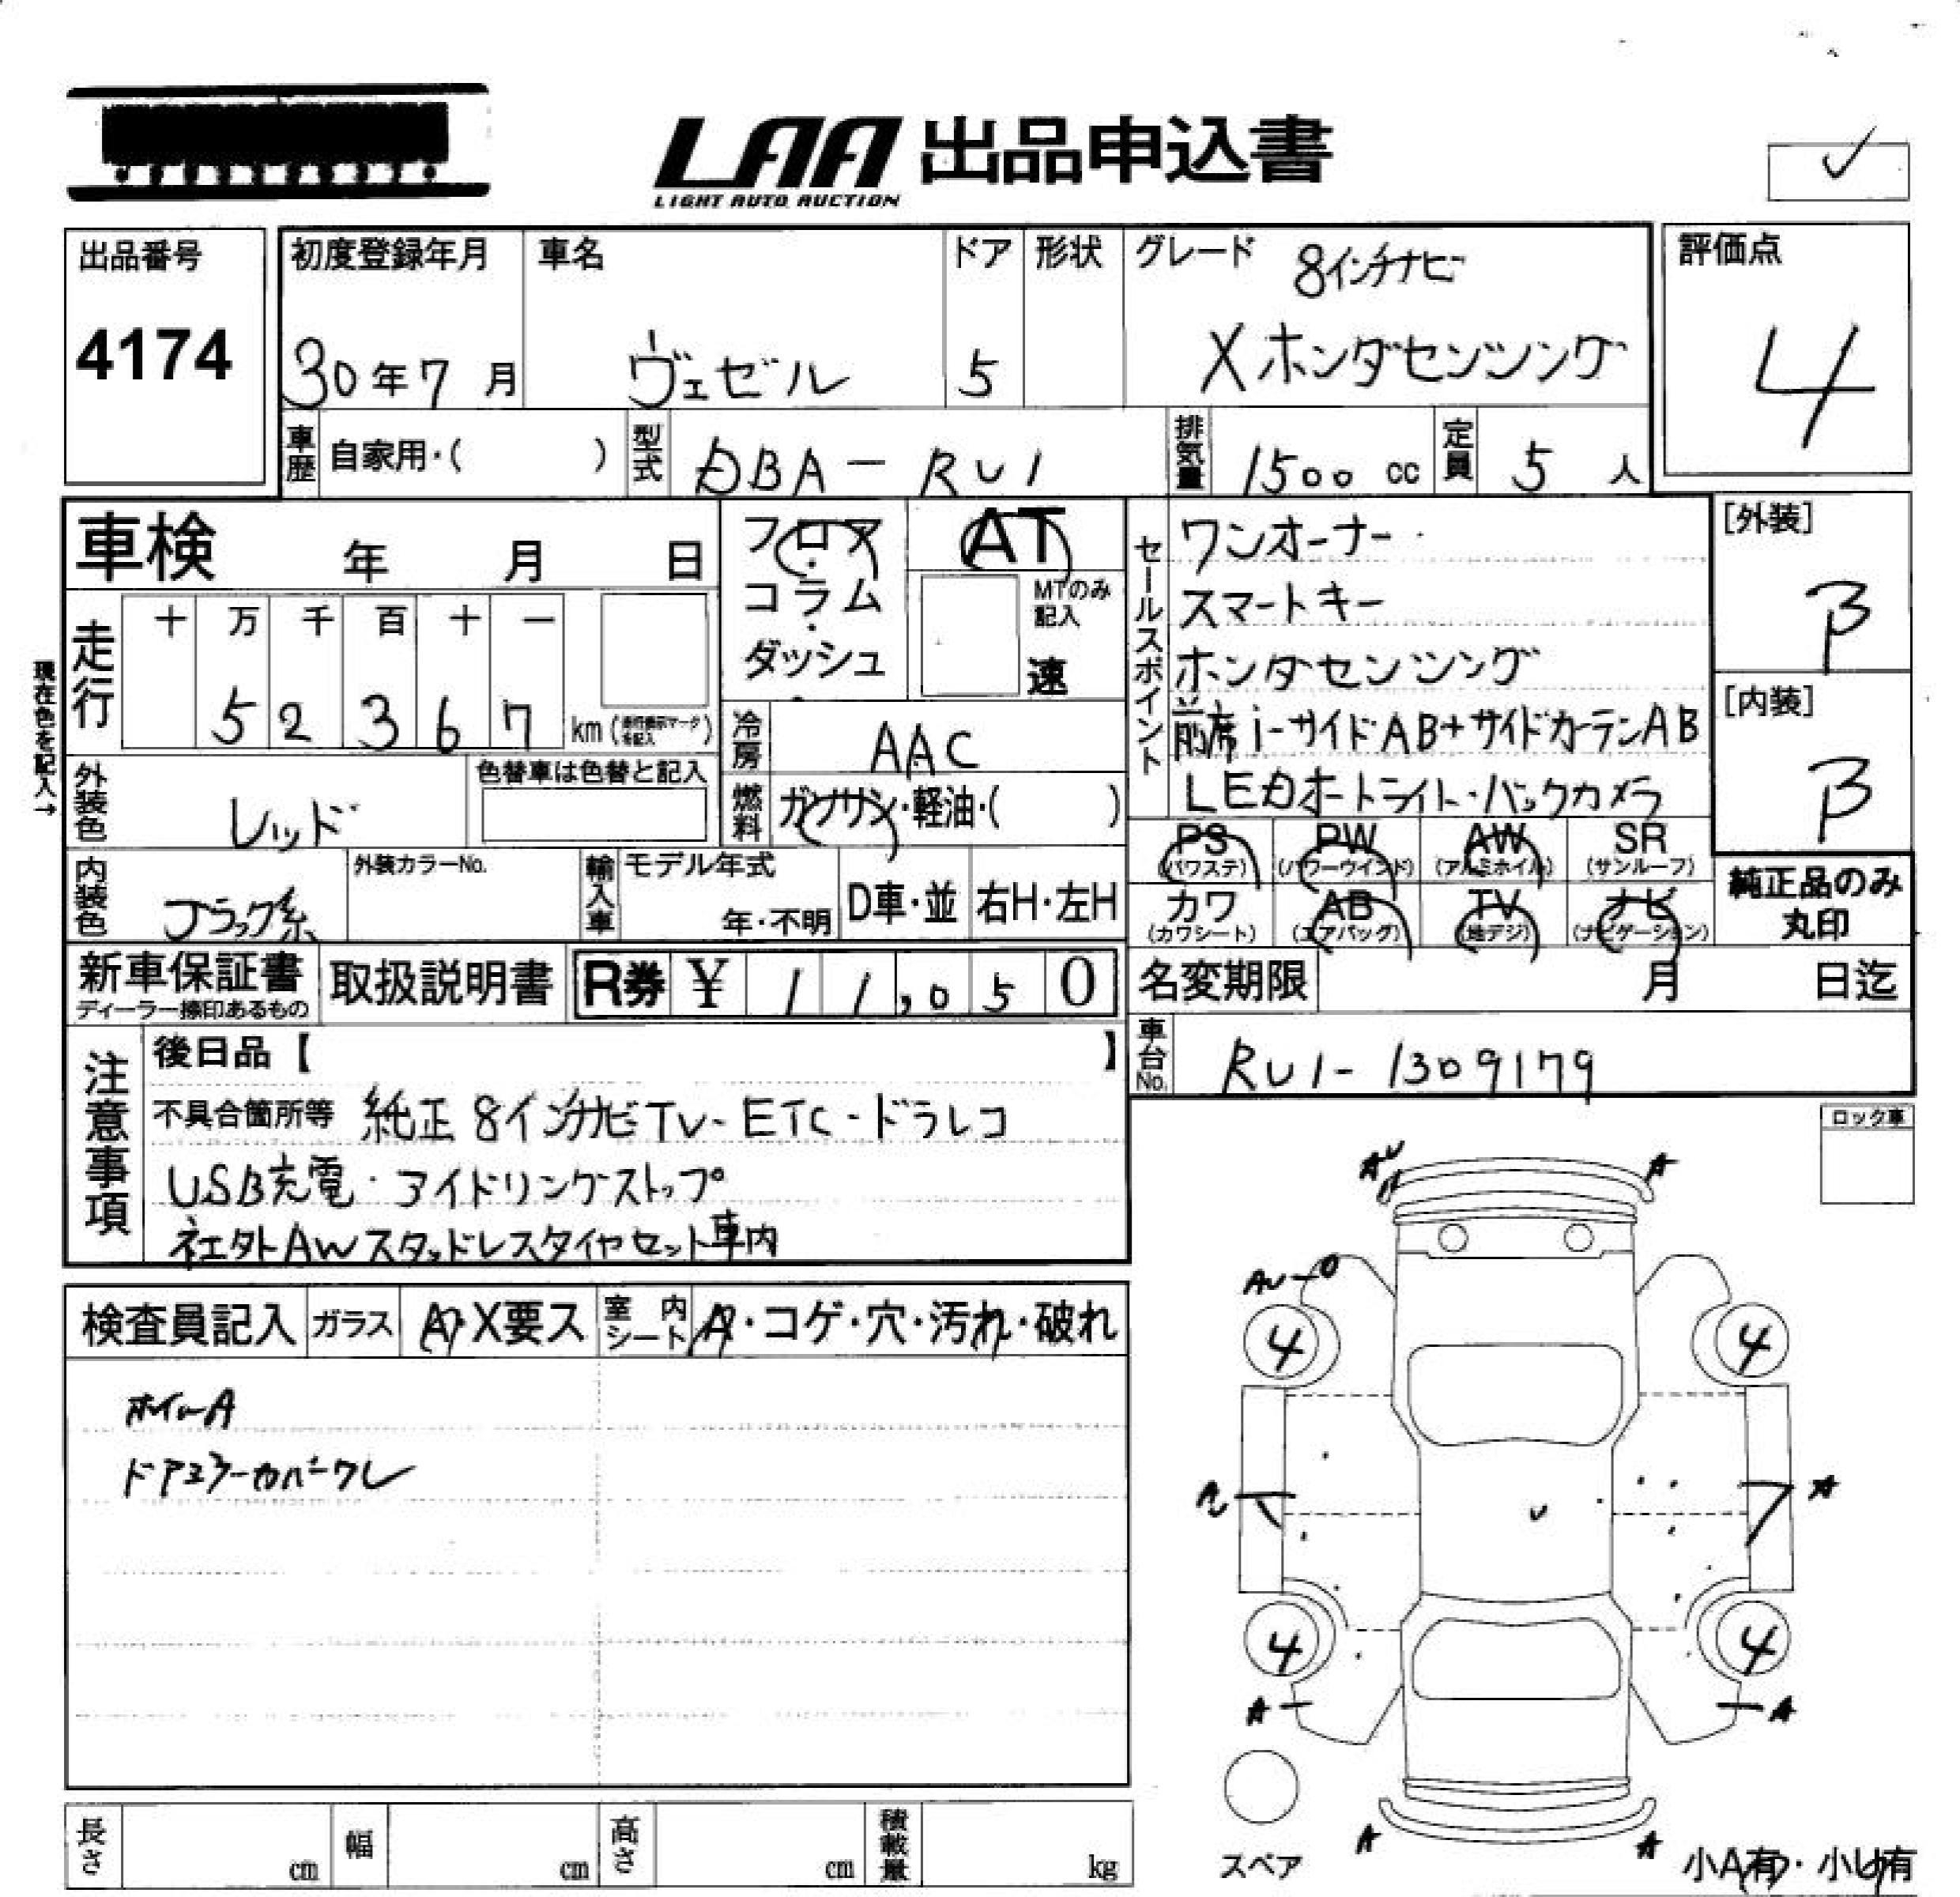 LAA 出品申込書
LIGHT AUTO AUCTION
出品番号
4174
初度登録年月
30年7月
車名
ヴェゼル
ドア
5
形状
グレード
8インチナビ
Xホンダセンシング
評価点
4
車歴 自家用・( )
型式 DBA-RU1
排気量 1500 cc
定員 5 人
車検 年 月 日
現在色を記入→
走行
十 万 千 百 十 一
5 2 3 6 7 km
フロア
コラム
ダッシュ
AT
MTのみ
記入
速
冷房 AAC
燃料 ガソリン・軽油・( )
外装色 レッド
色替車は色替と記入
内装色 ブラック系
外装カラーNo.
輸入車
モデル年式
年・不明
D車・並
右H・左H
セールスポイント
ワンオーナー
スマートキー
ホンダセンシング
前席i-サイドAB+サイドカーテンAB
LEDオートライト・バックカメラ
[外装]
B
[内装]
B
PS (パワステ)
PW (パワーウインド)
AW (アルミホイル)
SR (サンルーフ)
カワ (カワシート)
AB (エアバッグ)
TV (地デジ)
ナビ (ナビゲーション)
純正品のみ
丸印
新車保証書
ディーラー捺印あるもの
取扱説明書
R券 ¥ 11,050
名変期限 月 日迄
車台No. RU1-1309179
注意事項
後日品【 】
不具合箇所等 純正8インチナビTV-ETC-ドラレコ
USB充電・アイドリングストップ
社外AWスタッドレスタイヤセット車内
ロック車
検査員記入
ガラス A・X要ス
室内シート A・コゲ・穴・汚れ・破れ
ホイールA
ドアミラーカバーワレ
AU
A
A
AU
4
4
A
A
4
4
A
A
A
A
スペア
小A有・小U有
長さ cm
幅 cm
高さ cm
積載量 kg